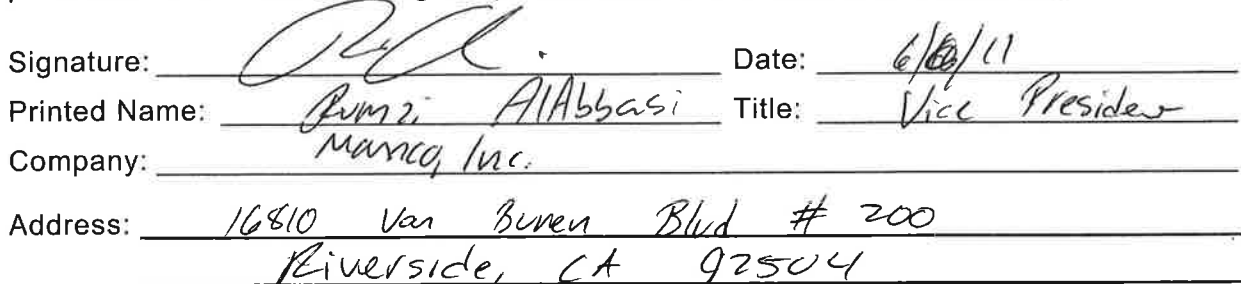 Signature: Date: 6/ /11
Printed Name: Rumzi AlAbbasi Title: Vice President
Company: Manco, Inc.
Address: 16810 Van Buren Blvd # 200
Riverside, CA 92504